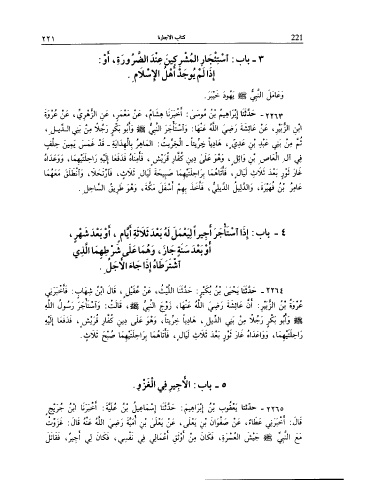 ٢٢١ كتاب الإجارة 221
٣ - باب: اسْتِئْجَارِ المُشْرِكِينَ عِنْدَ الضَّرُورَةِ، أَوْ:
إِذَا لَمْ يُوجَدْ أَهْلُ الإِسْلَامِ.
وَعَامَلَ النَّبِيُّ ﷺ يَهُودَ خَيْبَرَ.
٢٢٦٣ - حَدَّثَنَا إِبْرَاهِيمُ بْنُ مُوسَى: أَخْبَرَنَا هِشَامٌ، عَنْ مَعْمَرٍ، عَنِ الزُّهْرِيِّ، عَنْ عُرْوَةَ
ابْنِ الزُّبَيْرِ، عَنْ عَائِشَةَ رَضِيَ اللَّهُ عَنْهَا: وَاسْتَأْجَرَ النَّبِيُّ ﷺ وَأَبُو بَكْرٍ رَجُلًا مِنْ بَنِي الدِّيلِ،
ثُمَّ مِنْ بَنِي عَبْدِ بْنِ عَدِيٍّ، هَادِياً خِرِّيتاً - الخِرِّيتُ: المَاهِرُ بِالْهِدَايَةِ - قَدْ غَمَسَ يَمِينَ حِلْفٍ
فِي آلِ العَاصِ بْنِ وَائِلٍ، وَهُوَ عَلَى دِينِ كُفَّارِ قُرَيْشٍ، فَأَمِنَاهُ فَدَفَعَا إِلَيْهِ رَاحِلَتَيْهِمَا، وَوَعَدَاهُ
غَارَ ثَوْرٍ بَعْدَ ثَلَاثِ لَيَالٍ، فَأَتَاهُمَا بِرَاحِلَتَيْهِمَا صَبِيحَةَ لَيَالٍ ثَلَاثٍ، فَارْتَحَلَا، وَانْطَلَقَ مَعَهُمَا
عَامِرُ بْنُ فُهَيْرَةَ، وَالدَّلِيلُ الدِّيلِيُّ، فَأَخَذَ بِهِمْ أَسْفَلَ مَكَّةَ، وَهُوَ طَرِيقُ السَّاحِلِ.
٤ - باب: إِذَا اسْتَأْجَرَ أَجِيراً لِيَعْمَلَ لَهُ بَعْدَ ثَلَاثَةِ أَيَّامٍ، أَوْ بَعْدَ شَهْرٍ،
أَوْ بَعْدَ سَنَةٍ جَازَ، وَهُمَا عَلَى شَرْطِهِمَا الَّذِي
اشْتَرَطَاهُ إِذَا جَاءَ الأَجَلُ.
٢٢٦٤ - حَدَّثَنَا يَحْيَى بْنُ بُكَيْرٍ: حَدَّثَنَا اللَّيْثُ، عَنْ عُقَيْلٍ، قَالَ ابْنُ شِهَابٍ: فَأَخْبَرَنِي
عُرْوَةُ بْنُ الزُّبَيْرِ: أَنَّ عَائِشَةَ رَضِيَ اللَّهُ عَنْهَا، زَوْجَ النَّبِيِّ ﷺ، قَالَتْ: وَاسْتَأْجَرَ رَسُولُ اللَّهِ
ﷺ وَأَبُو بَكْرٍ رَجُلًا مِنْ بَنِي الدِّيلِ، هَادِياً خِرِّيتاً، وَهُوَ عَلَى دِينِ كُفَّارِ قُرَيْشٍ، فَدَفَعَا إِلَيْهِ
رَاحِلَتَيْهِمَا، وَوَاعَدَاهُ غَارَ ثَوْرٍ بَعْدَ ثَلَاثِ لَيَالٍ، فَأَتَاهُمَا بِرَاحِلَتَيْهِمَا صُبْحَ ثَلَاثٍ.
٥ - باب: الأَجِيرِ فِي الغَزْوِ.
٢٢٦٥ - حدثنا يَعْقُوبُ بْنُ إِبْرَاهِيمَ: حَدَّثَنَا إِسْمَاعِيلُ بْنُ عُلَيَّةَ: أَخْبَرَنَا ابْنُ جُرَيْجٍ
قَالَ: أَخْبَرَنِي عَطَاءٌ، عَنْ صَفْوَانَ بْنِ يَعْلَى، عَنْ يَعْلَى بْنِ أُمَيَّةَ رَضِيَ اللَّهُ عَنْهُ قَالَ: غَزَوْتُ
مَعَ النَّبِيِّ ﷺ جَيْشَ العُسْرَةِ، فَكَانَ مِنْ أَوْثَقِ أَعْمَالِي فِي نَفْسِي، فَكَانَ لِي أَجِيرٌ، فَقَاتَلَ